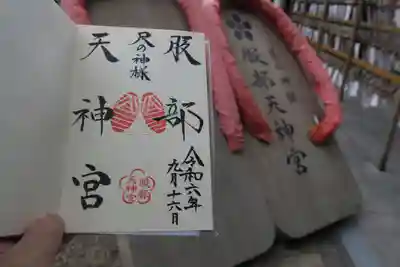 服部
足の神様
天神宮
令和六年
九月十六日
服部
天神宮
服部天神宮